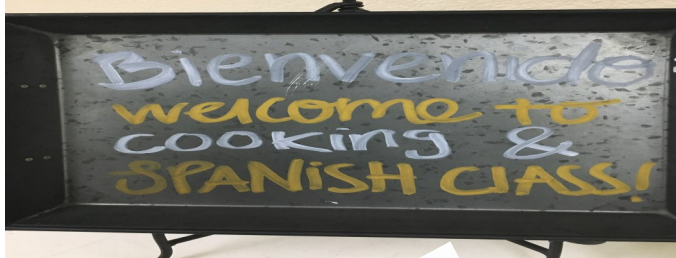 Bienvenido
welcome to
cooking &
SPANiSH ClASS!